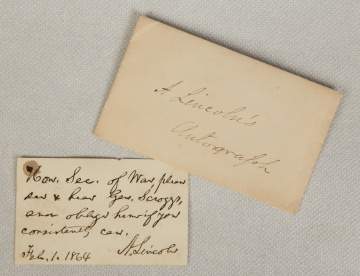 A Lincoln's
Autograph
Hon. Sec. of War please
see & hear Gen. Scroggs,
and oblige him if you
consistently can.
Feb. 1. 1864 A. Lincoln